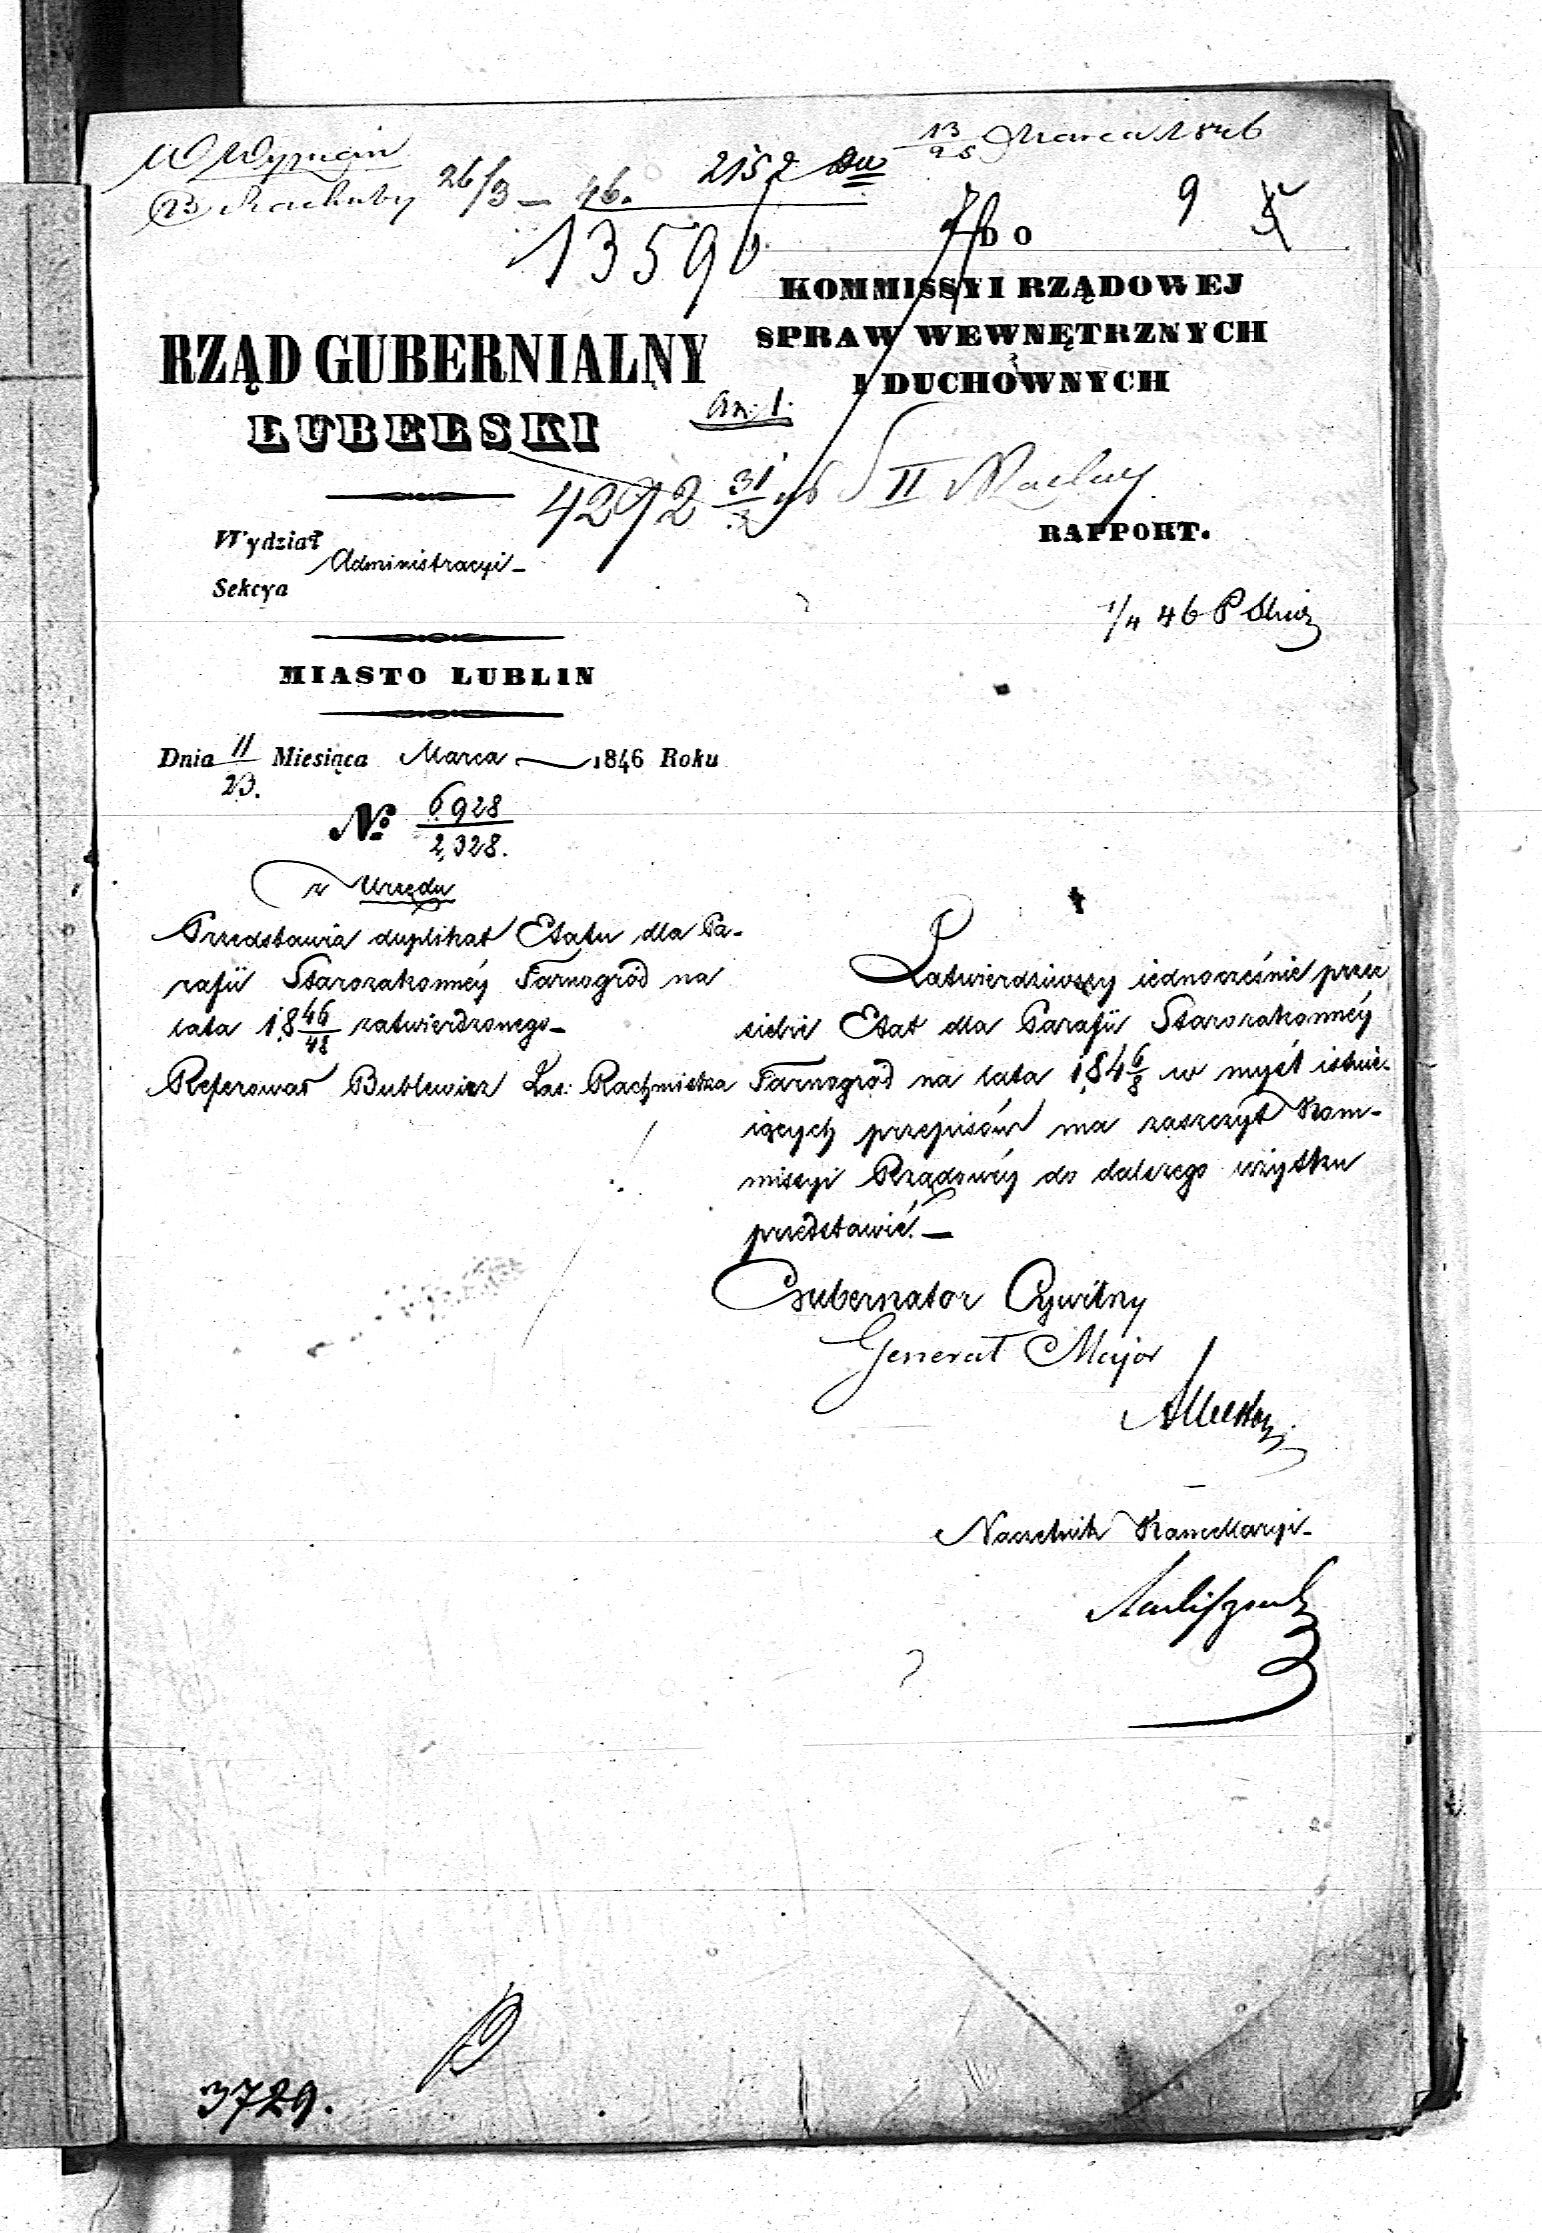 13/25 Marca 1846
W Wyznań
26/3 – 46.
2157
13590
9
DO
KOMMISSYI RZĄDOWEJ
SPRAW WEWNĘTRZNYCH
I DUCHOWNYCH
RZĄD GUBERNIALNY
LUBELSKI
an: 1.
4292 31/3 46 S II
RAPPORT.
Wydział
Administracyi –
Sekcya
1/4 46 P
MIASTO LUBLIN
Dnia 11/23. Miesiąca Marca 1846 Roku
No. 6928/2,328.
z Urzędu
Przedstawia duplikat Etatu dla Pa-
rafii Starozakonnéy Tarnogród na
lata 1846/48 zatwierdzonego –
Referował Bublewicz Zas: Rachmistrza
Zatwierdziwszy iednocześnie przez
siebie Etat dla Parafii Starozakonnéy
Tarnogród na lata 1846/8 w myśl istnie-
iących przepisów ma zaszczyt Kom-
missyi Rządowéy do dalszego użytku
przedstawić. –
Gubernator Cywilny
Generał Major
Naczelnik Kancellaryi –
3729.